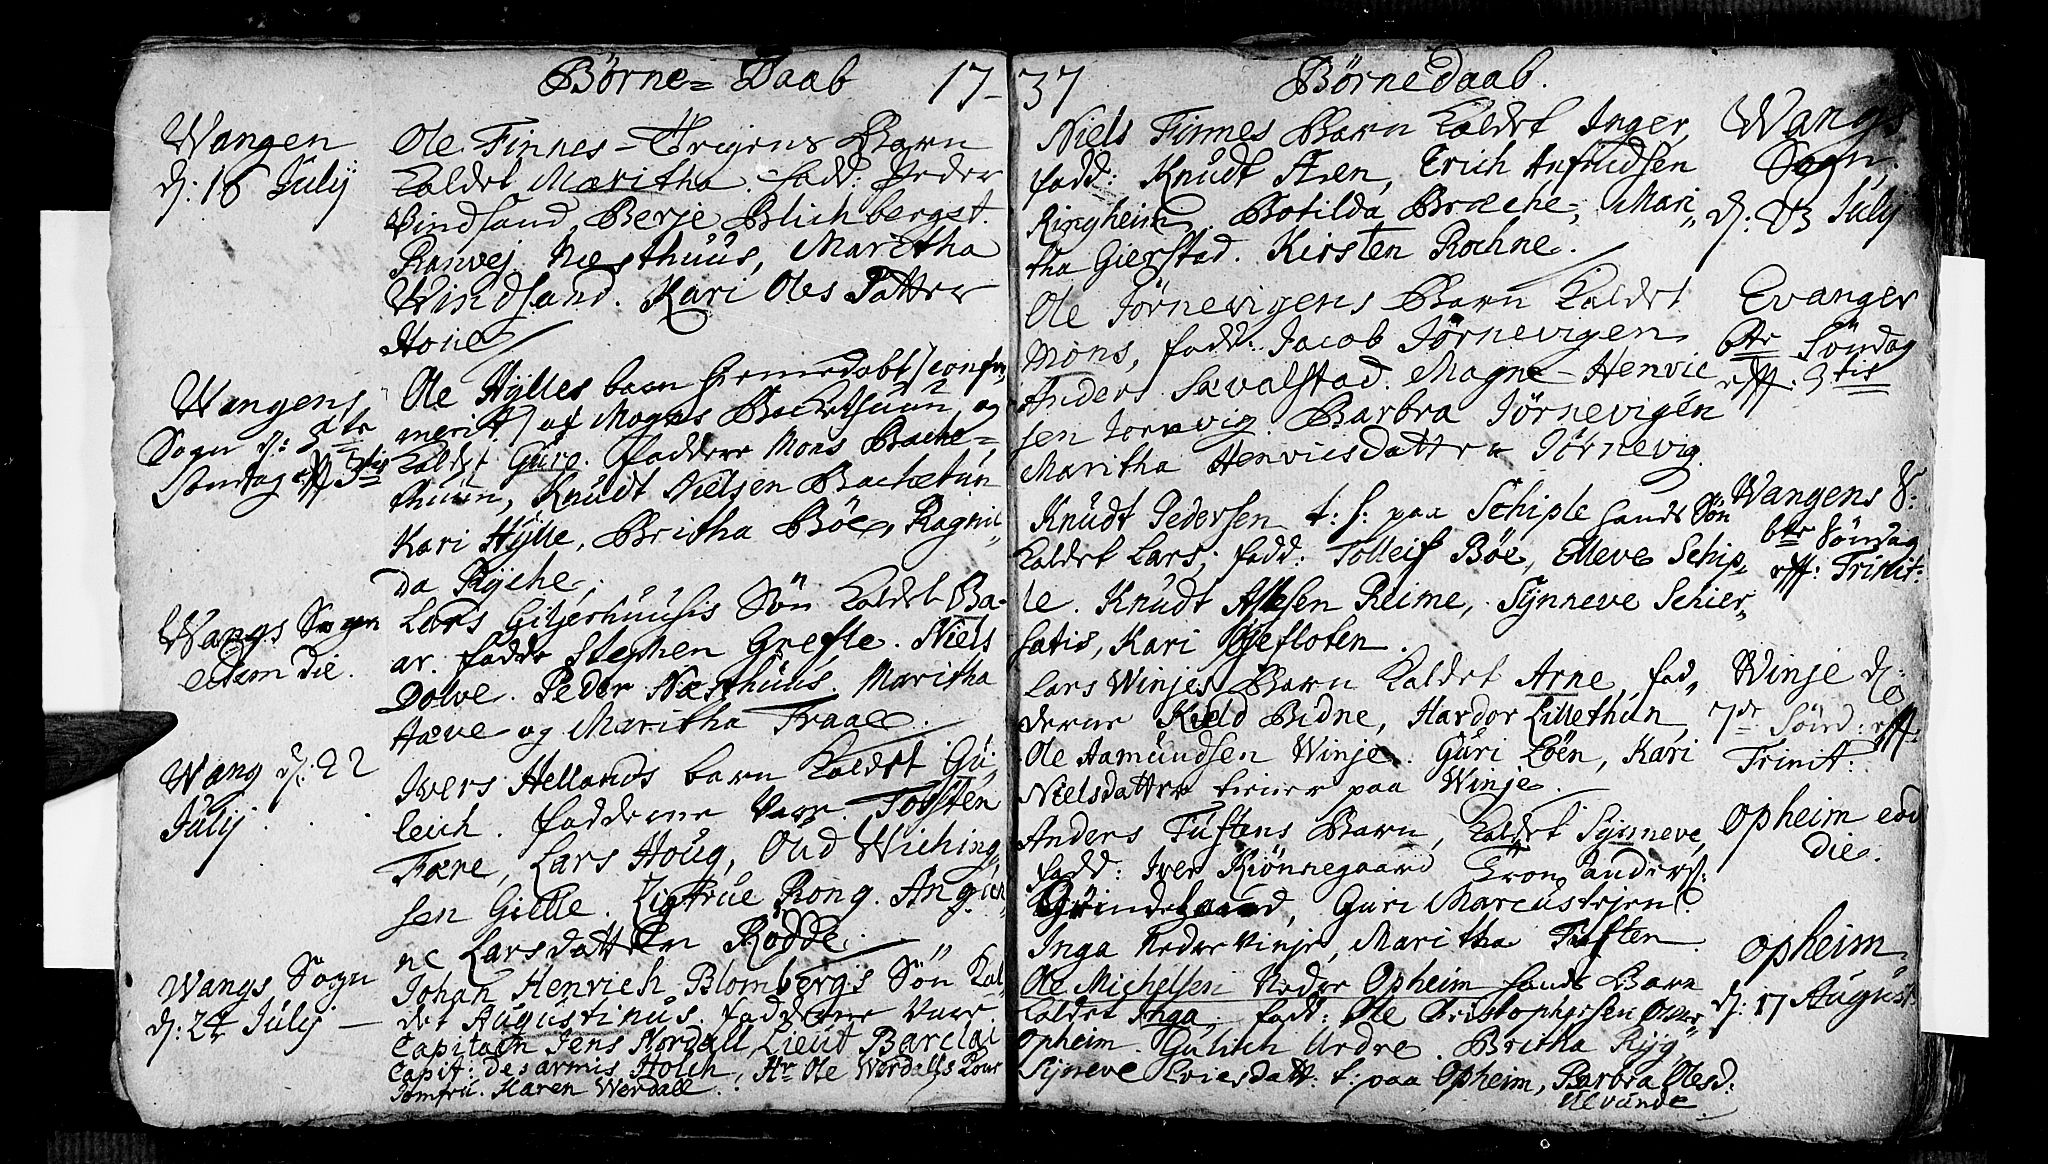 Børne=Daab 17-
Wangen
d: 16 July
Ole Finnes-Treyens Barn
Kaldet Maritha. fadd: Peder
Windsand, Berje Blichbergst.
Ranvej Næsthuus, Maritha
Windsand. Kari Oles Datter
Hone
Wangens
Sogn d: 5te
Søndag eff 3tis
Ole Hylles barn hiemedøbt (confir
merit) af Mogns Bachethuun, og
Kaldet Gure. faddere Mons Bache=
thuun, Knudt Nielsen Bachetun
Kari Hylle, Britha Böe, Ragnil
da Ryche.
Wangs Sogn
eodem die.
Lars Giljerhuusis Sön Kaldet Ba-
ar. fadde Stephen Grefle. Niels
Dolve. Peder Næsthuus. Maritha
Hæve og Maritha Traae.
Wang d: 22
July.
Ivers Hellands barn Kaldet Gu,
leich. fadderne Vare Tosten
Fæne, Lars Houg, Oud Wiching,
sen Gielle. Zigtrue Rong. Angier,
ne Larsdatter Rödde.
Wangs Sogn
d: 24 July
Johan Henrich Blombergs Sön Kal,
det Augustinus. fadderne Vare
Capitain Jens Nordall, Lieut Barclai
Capit: des armis Holch, Hr Ole Werdalls Kone
Jomfru. Karen Werdall.
37 Børnedaab.
Niels Finnes Barn Kaldet Inger,
fadd: Knudt Aen, Erich Anfindsen
Ringheim, Botilda Bræche, Mari,,
tha Gierstad. Kirsten Rochne.
Wangs
Sogn,
d: 23 July
Ole Jörnevigens Barn Kaldet
Mons, fadd: Jacob Jörnevigen
Anders Sævalstad. Magne Henric
sen Jornevig. Barbra Jörnevigen
Maritha Henricsdatter Jörnevig.
Evanger
6te Söndag
eff: 3tis
Knudt Pedersen t: s: paa Schiple hands Sön
Kaldet Lars, fadd: Tolleif Böe, Elleve Schip,
le. Knudt Aslesen Reime, Synneve Schier,
satis, Kari Gjefloten.
Wangens S:
6te Söndag
eff: Trinit:
Lars Winjes Barn Kaldet Arne, fad,,
derne Kield Bidne, Hardor Lillethun,
Ole Aamundsen Winje. Guri Löen, Kari
Nielsdatter tiener paa Winje.
Winje d:
7de Sönd: eff:
Trinit:
Anders Tuftens Barn, Kaldet Synneve,
fadd: Iver Kiönnegaard Eron Anders:
Grindeland, Guri Marcusteien.
Inga Nedre Vinje, Maritha Tuften.
Opheim eod
die.
Ole Michelsen Nedre Opheim hands Barn
Kaldet Inga, fadd: Ole Christophersen Over,
Opheim. Gulich Urdre. Britha Ryg
Syneve Loiesdatt: t: paa Opheim, Barbra Olesd:
Ulvunde.
Opheim
d: 17 August